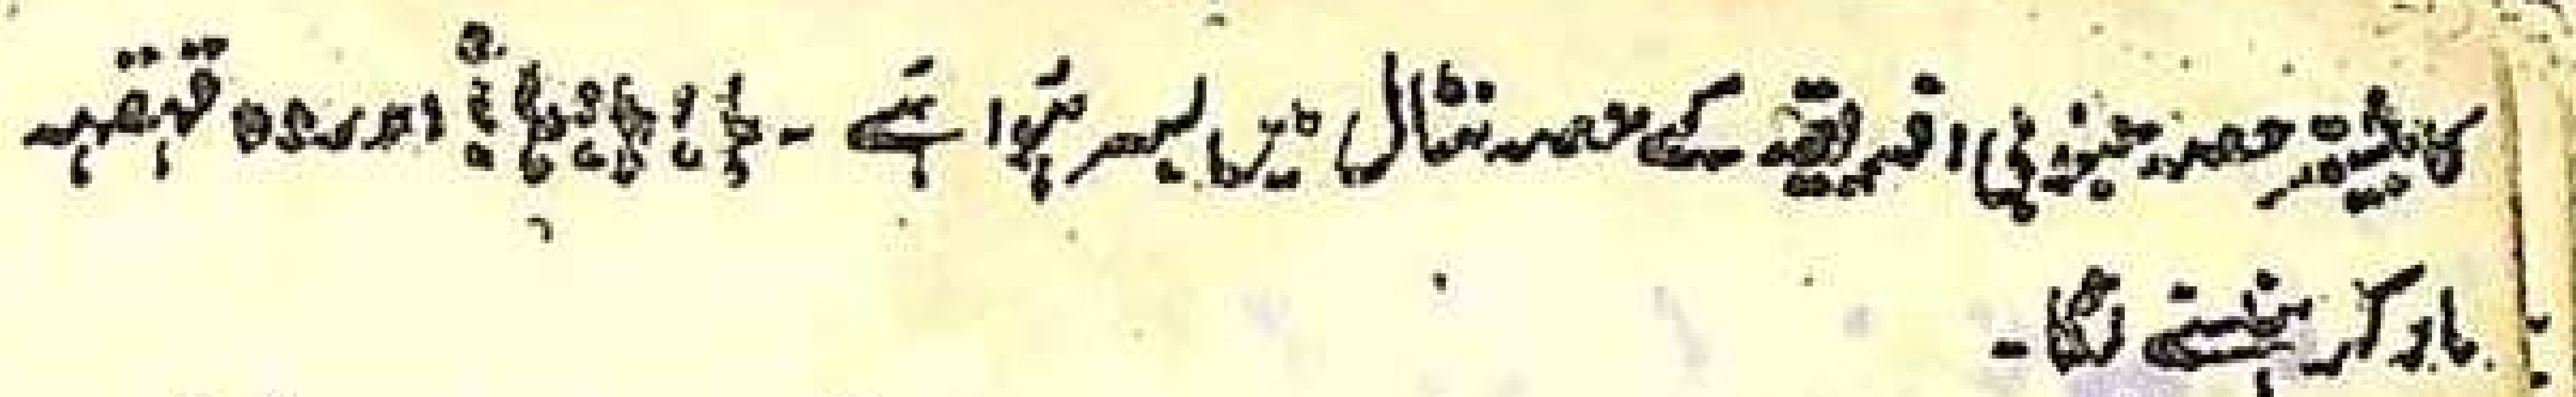 کا بیشتر حصہ جنوبی افریقہ کے حصہ شمال میں بسر ہوا ہے - ہا ہا ہا ہا ہا ہا اور وہ قہقہہ
مار کر ہنسنے لگا -